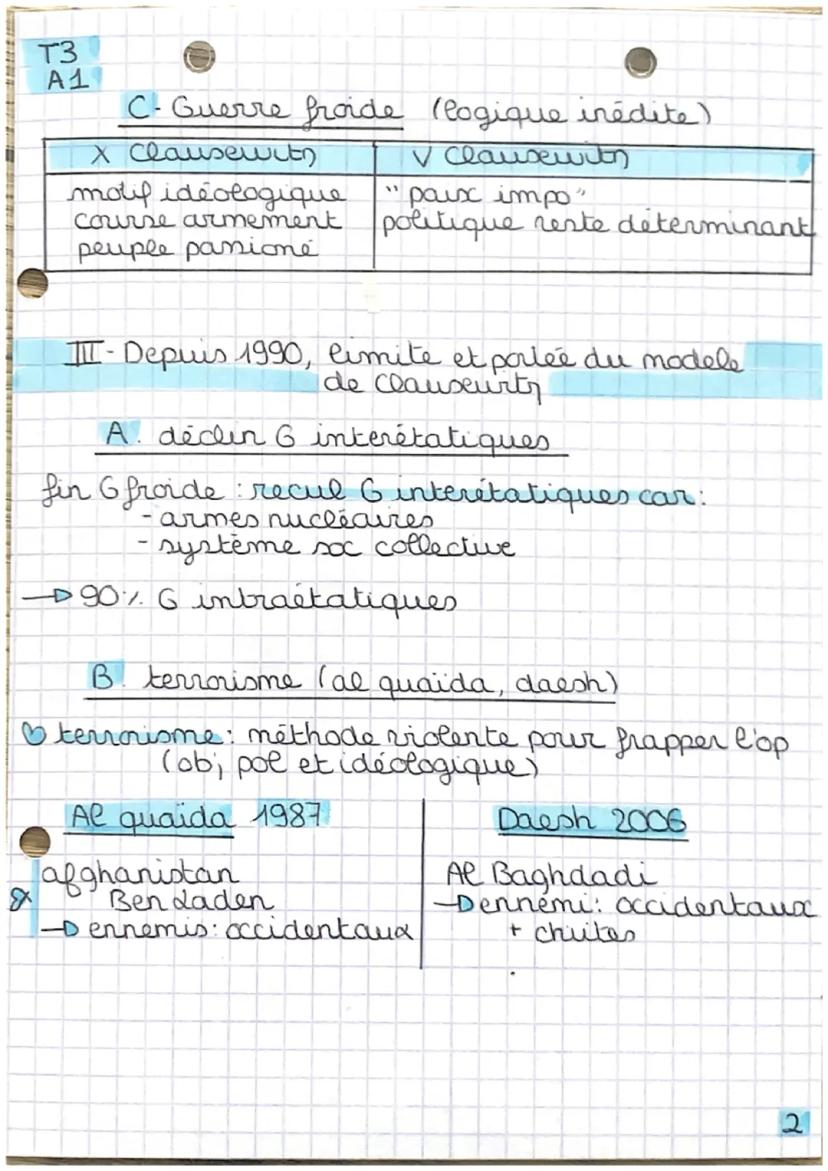 T3
A1
C- Guerre froide (logique inédite)
X Clausewitz
V Clausewitz
motif idéologique
course armement
peuple passioné
"paix impo"
politique reste déterminant
III- Depuis 1990, limite et portée du modele
de Clausewitz
A. déclin G interétatiques
fin G froide : recul G interétatiques car :
- armes nucléaires
- système soc collective
→ 90% G intraétatiques
B. terrorisme (al quaïda, daesh)
♡ terrorisme : méthode violente pour frapper l'op
(obj pol et idéologique)
Al quaïda 1987
afghanistan
Ben Laden
→ ennemis : occidentaux
Daesh 2006
Al Baghdadi
→ ennemi : occidentaux
+ chiites
2